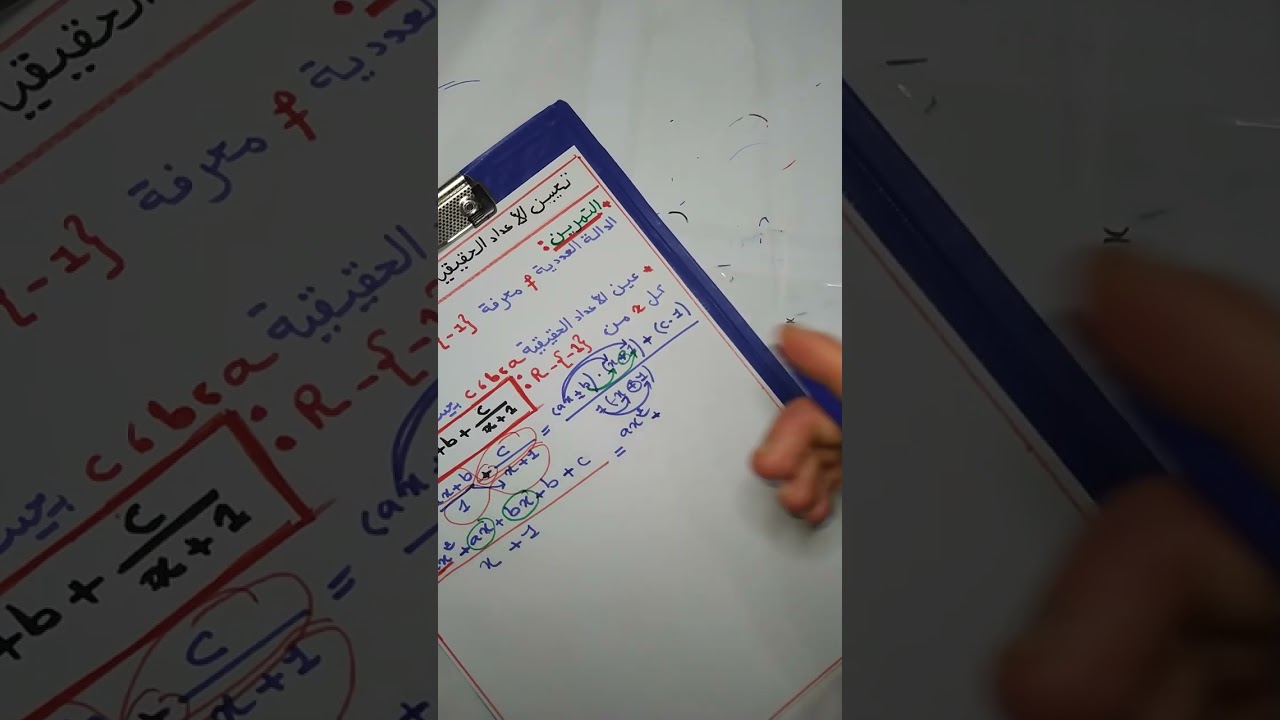 تعيين الأعداد الحقيقية
التمرين:
الدالة العددية f معرفة {-1}
* عين الأعداد الحقيقية a، b، c بحيث
كل x من R-{-1}:
+b + c/(x+1)
(x+b)/1 + c/(x+1) = ((ax+b)·(x+1) + (c·1))/(1·(x+1))
x² + ax + bx + b + c = ax² +
x + 1